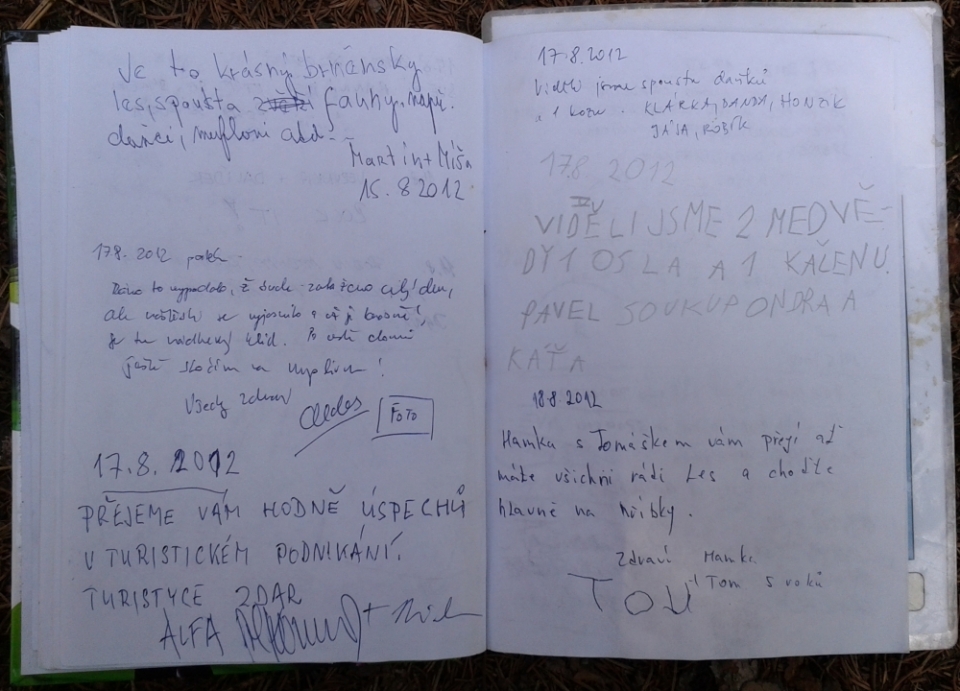 Je to krásný brněnsky
les, spousta fauny, např.
daňci, mufloni atd.
Martin + Míša
15. 8 2012
17.8. 2012 pátek
Ráno to vypadalo, ž bude zataženo celý den,
ale naštěstí se vyjasnilo a
je tu nádherný klid. Po cestě domů
ještě skočím na
Všecky zdraví
FOTO
17. 8. 2012
PŘEJEME VÁM HODNĚ ÚSPECHŮ
V TURISTICKÉM PODNIKÁNÍ.
TURISTYCE ZDAR
ALFA +
17.8.2012
Viděli jsme spousta daňků
a 1 kozu. KLÁRKA, DANDA, HONZÍK
JÁJA, RÓBÍK
17.8. 2012
VIDĚLI JSME 2 MEDVĚ-
DY 1 OSLA A 1 KAČENU.
PAVEL SOUKUP ONDRA A
KÁŤA
18.8.2012
Hanka s Tomáškem vám přejí ať
máte všichni rádi Les a choďte
hlavně na hříbky.
Zdraví Hanka
Tom 5 roků
TOM